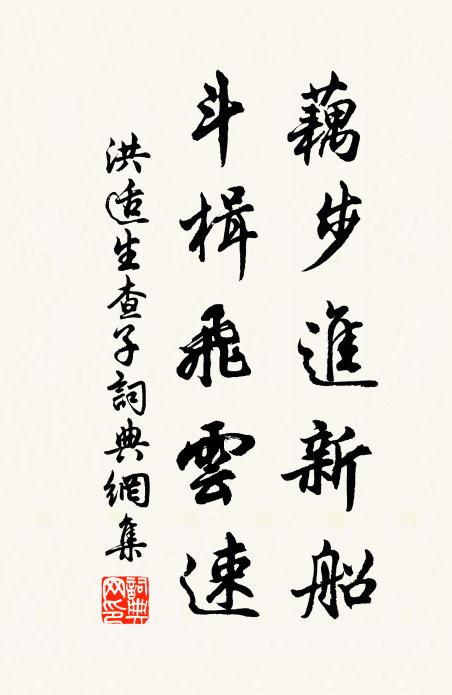 藕步進新船
斗楫飛雲速
洪适生查子詞典網集
詞典
网印